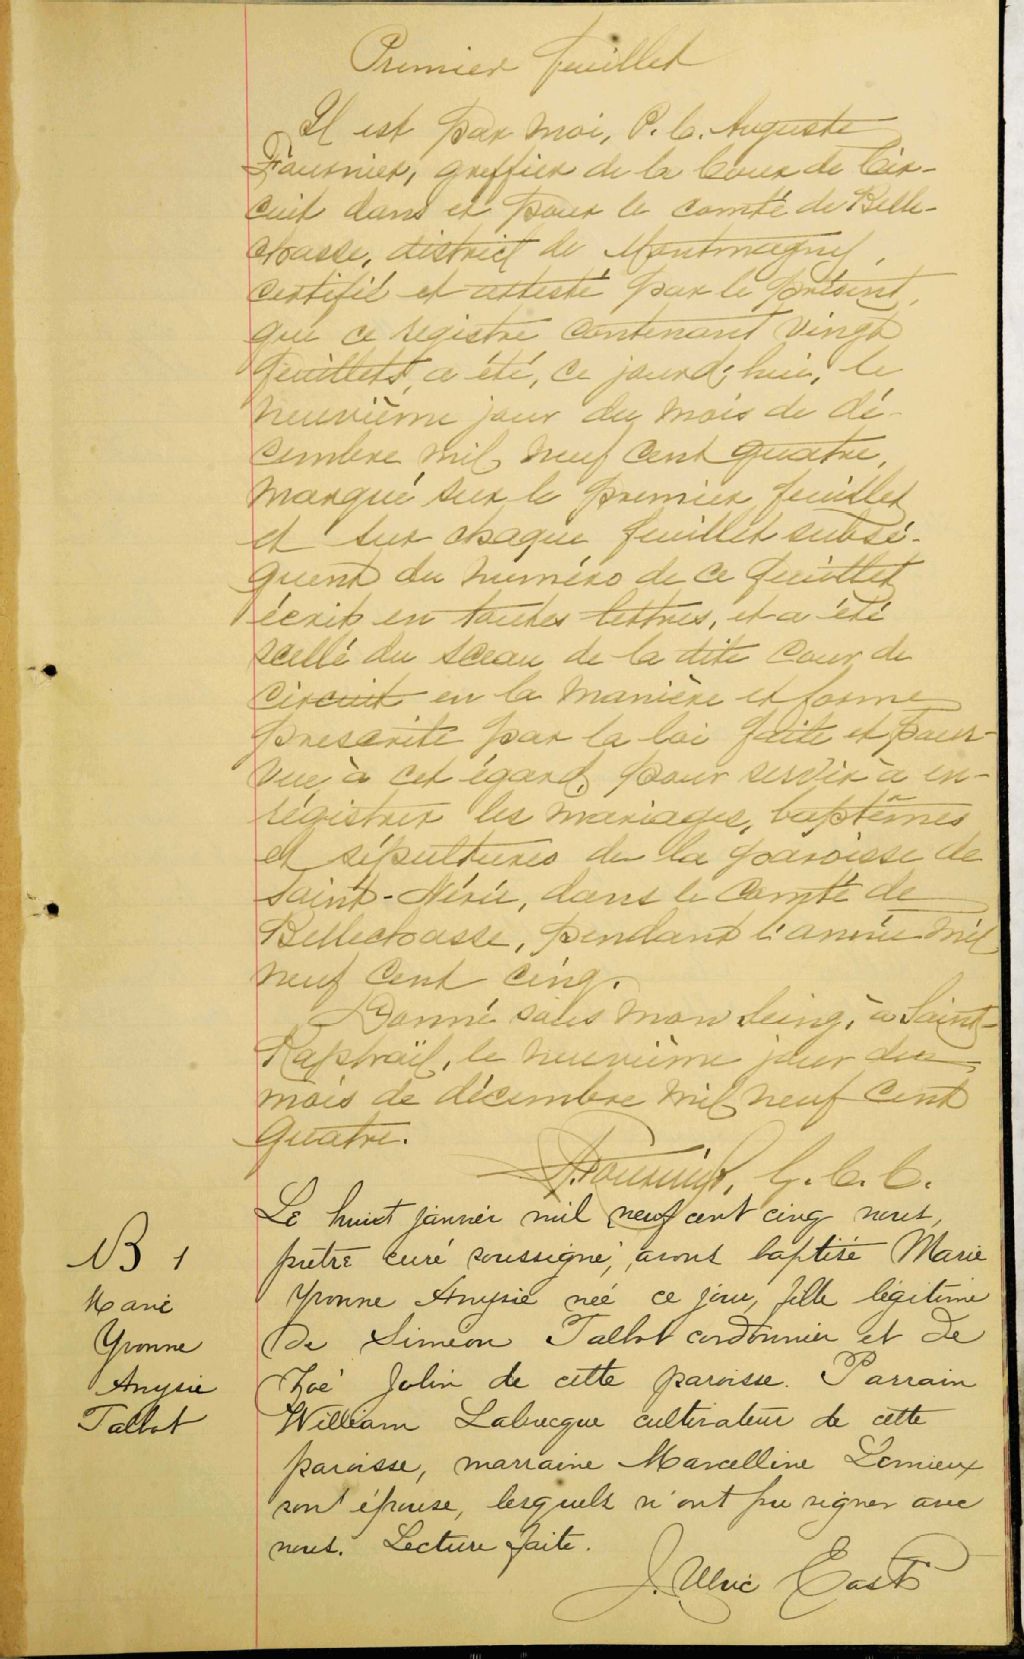 Premier feuillet
Il est par moi, P. C. Auguste
Fournier, greffier de la Cour de Cir-
cuit dans et pour le comté de Belle-
chasse, district de Montmagny,
certifié et attesté par le présent,
que ce registre contenant vingt
feuillets, a été, ce jourd'hui, le
neuvième jour du mois de dé-
cembre mil neuf cent quatre,
marqué sur le premier feuillet
et sur chaque feuillet subsé-
quent du numéro de ce feuillet
écrit en toutes lettres, et a été
scellé du sceau de la dite Cour de
circuit en la manière et forme
prescrite par la loi faite et pour-
vue à cet égard, pour servir à en-
régistrer les mariages, baptêmes
et sépultures de la paroisse de
Saint-Nérée, dans le Comté de
Bellechasse, pendant l'année mil
neuf cent cinq.
Donné sous mon seing, à Saint-
Raphaël, le neuvième jour du
mois de décembre mil neuf cent
quatre.
A. Fournier, G. C. C.
Le huit janvier mil neuf cent cinq nous,
prêtre curé soussigné, avons baptisé Marie
Yvonne Anysie née ce jour, fille légitime
de Siméon Talbot cordonnier et de
Zoé Jolin de cette paroisse. Parrain
William Labrecque cultivateur de cette
paroisse, marraine Marcelline Lemieux
son épouse, lesquels n'ont pu signer avec
nous. Lecture faite.
J. Ulric East
B 1
Marie
Yvonne
Anysie
Talbot